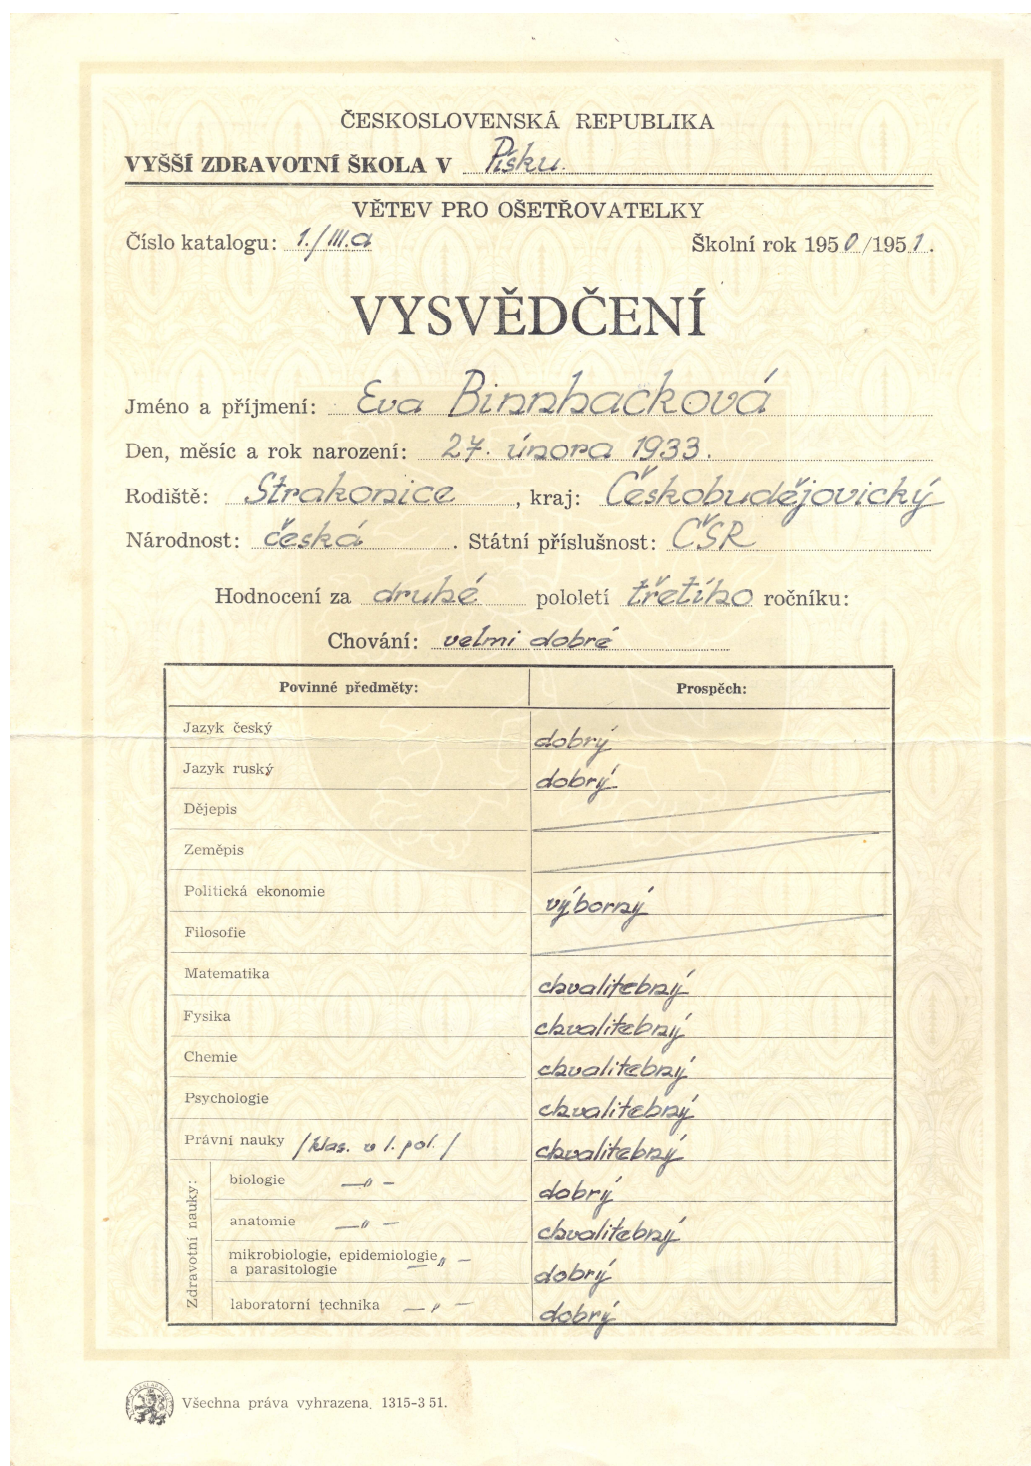 ČESKOSLOVENSKÁ REPUBLIKA
VYŠŠÍ ZDRAVOTNÍ ŠKOLA V Písku.
VĚTEV PRO OŠETŘOVATELKY
Číslo katalogu: 1./III.a Školní rok 1950/1951.
VYSVĚDČENÍ
Jméno a příjmení: Eva Binnhačková
Den, měsíc a rok narození: 27. února 1933.
Rodiště: Strakonice, kraj: Českobudějovický
Národnost: česká. Státní příslušnost: ČSR
Hodnocení za druhé pololetí třetího ročníku:
Chování: velmi dobré
Povinné předměty: Prospěch:
Jazyk český dobrý
Jazyk ruský dobrý
Dějepis
Zeměpis
Politická ekonomie výborný
Filosofie
Matematika chvalitebný
Fysika chvalitebný
Chemie chvalitebný
Psychologie chvalitebný
Právní nauky /klas. v 1. pol./ chvalitebný
Zdravotní nauky:
biologie —"— dobrý
anatomie —"— chvalitebný
mikrobiologie, epidemiologie
a parasitologie —"— dobrý
laboratorní technika —"— dobrý
Všechna práva vyhrazena. 1315-3 51.